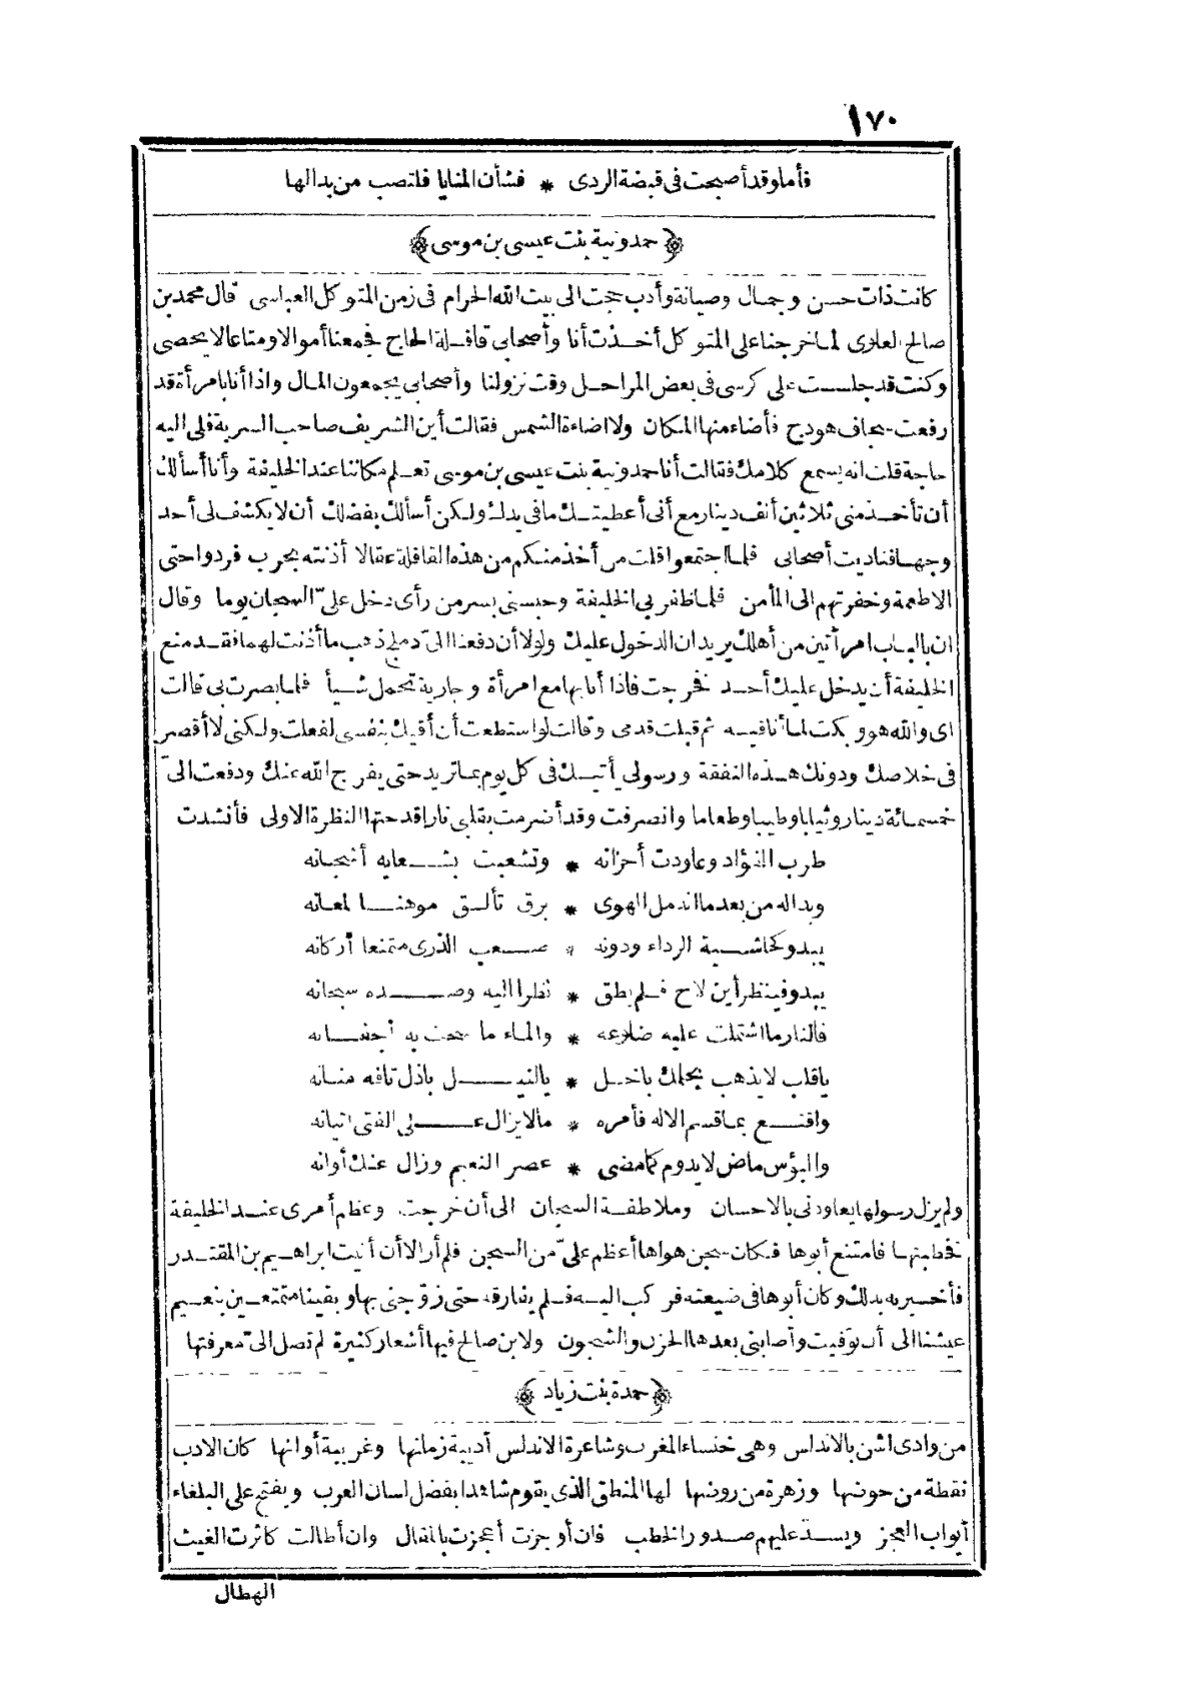 ١٧٠
فأما وقد أصبحت فى قبضة الردى * فشأن المنايا فلتصب من بدالها
﴿حمدونية بنت عيسى بن موسى﴾
كانت ذات حسن وجمال وصيانة وأدب حجت الى بيت الله الحرام فى زمن المتوكل العباسى قال محمد بن
صالح العلوى لما خرجنا على المتوكل أخذت أنا وأصحابى قافلة الحاج فجمعنا أموالا ومتاعا لا يحصى
وكنت قد جلست على كرسى فى بعض المراحل وقت نزولنا وأصحابى يجمعون المال واذا أنا بامرأة قد
رفعت سجاف هودج فأضاء منها المكان ولا اضاءة الشمس فقالت أين الشريف صاحب السرية فلى اليه
حاجة قلت انه يسمع كلامك فقالت أنا حمدونية بنت عيسى بن موسى تعلم مكاننا عند الخليفة وأنا أسألك
أن تأخذ منى ثلاثين ألف دينار مع أنى أعطيتك ما فى يدك ولكن أسألك بفضلك أن لا يكشف لى أحد
وجها فناديت أصحابى فلما اجتمعوا قلت من أخذ منكم من هذه القافلة عقالا أذنته بحرب فردوا حتى
الاطعمة وخفرتهم الى المأمن فلما ظفر بى الخليفة وحبسنى بسر من رأى دخل علىّ السجان يوما وقال
ان بالباب امرأتين من أهلك يريدان الدخول عليك ولولا أن دفعنا الىّ دملج ذهب ما أذنت لهما فقد منع
الخليفة أن يدخل عليك أحد فخرجت فاذا أنا بها مع امرأة وجارية تحمل شيأ فلما بصرت بى قالت
اى والله هو وبكت لما أنا فيه ثم قبلت قدمى وقالت لو استطعت أن أقيك بنفسى لفعلت ولكنى لا أقصر
فى خلاصك ودونك هذه النفقة ورسولى أتيك فى كل يوم بما تريد حتى يفرج الله عنك ودفعت الىّ
خمسمائة دينار وثيابا وطيبا وطعاما وانصرفت وقد أضرمت بقلبى نارا قدحتها النظرة الاولى فأنشدت
طرب الفؤاد وعاودت أحزانه * وتشعبت بشعابه أشجانه
وبدا له من بعد ما اندمل الهوى * برق تألق موهنا لمعانه
يبدو كحاشية الرداء ودونه * صعب الذرى متمنعا أركانه
يبدو فينظر أين لاح فلم يطق * نظرا اليه وصده سبحانه
فالنار ما اشتملت عليه ضلوعه * والماء ما سمحت به أجفانه
ياقلب لا يذهب بحلمك باخل * بالنيل باذل تافه منانه
واقنع بما قسم الاله فأمره * مالا يزال على الفتى اتيانه
والبؤس ماض لا يدوم كما مضى * عصر النعيم وزال عنك أوانه
ولم يزل رسولها يعاودنى بالاحسان وملاطفة السجان الى أن خرجت وعظم أمرى عند الخليفة
فخطبتها فامتنع أبوها فكان سجن هواها أعظم علىّ من السجن فلم أر الا أن أتيت ابراهيم بن المقتدر
فأخبرته بذلك وكان أبوها فى ضيعته فركب اليه فلم يفارقه حتى زوّجنى بها وبقينا متمتعين بنعيم
عيشنا الى أن توفيت وأصابنى بعدها الحزن والشجون ولابن صالح فيها أشعار كثيرة لم تصل الىّ معرفتها
﴿حمدة بنت زياد﴾
من وادى اشن بالاندلس وهى خنساء المغرب وشاعرة الاندلس أديبة زمانها وغريبة أوانها كان الادب
نقطة من حوضها وزهرة من روضها لها المنطق الذى يقوم شاهدا بفضل لسان العرب ويفتح على البلغاء
أبواب العجز ويسدّ عليهم صدور الخطب فان أوجزت أعجزت بالمقال وان أطالت كاثرت الغيث
الهطال